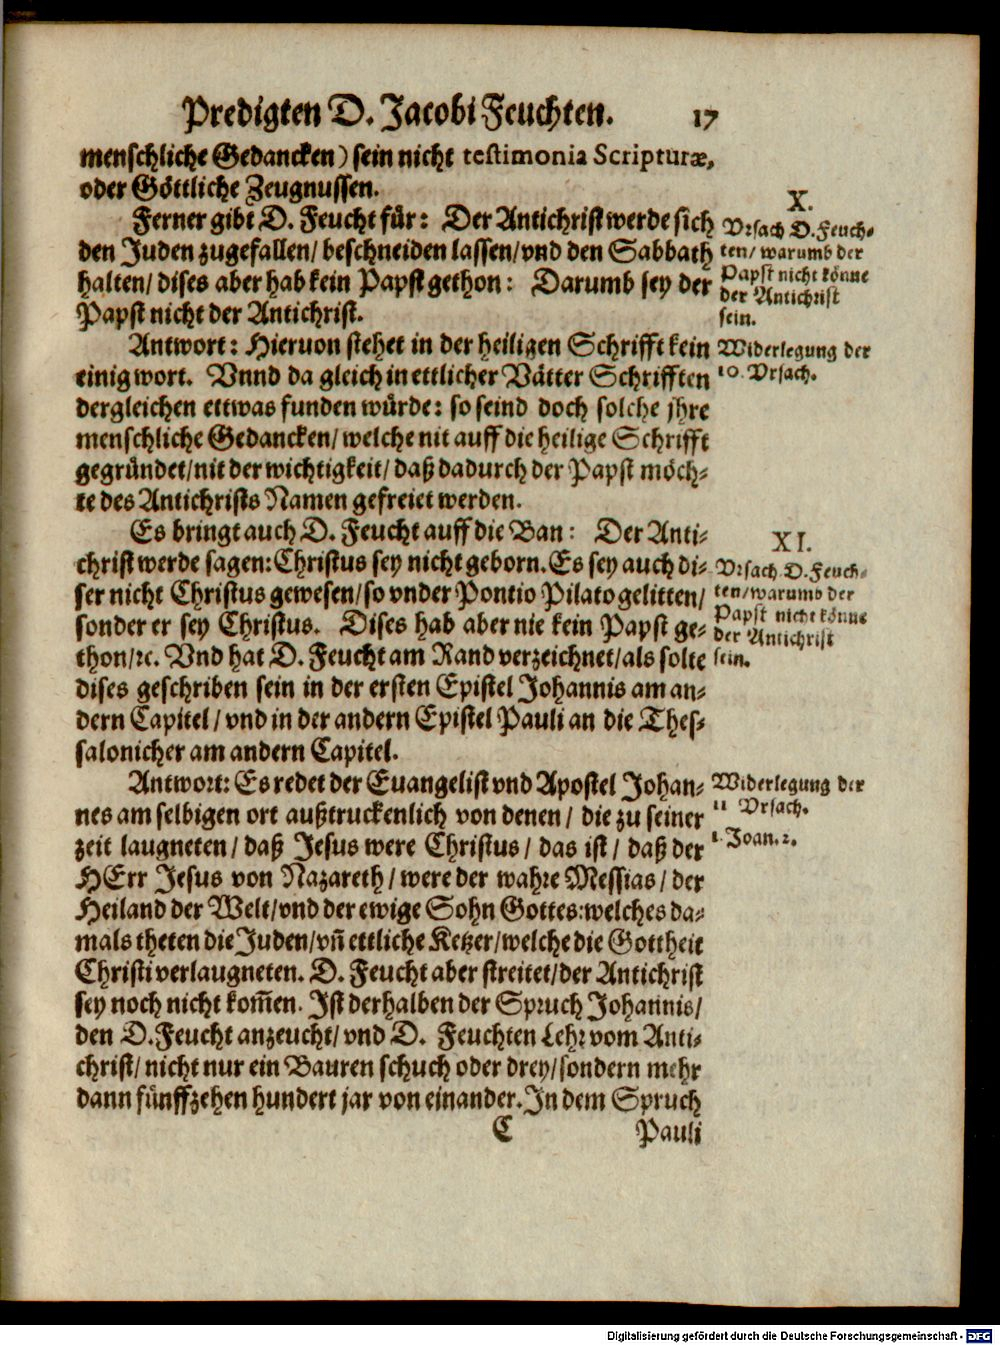 Predigten D. Jacobi Feuchten. 17
menschliche Gedancken) sein nicht testimonia Scripturæ,
oder Göttliche Zeugnussen.
Ferner gibt D. Feucht für: Der Antichrist werde sich
den Juden zugefallen/ beschneiden lassen/ vnd den Sabbath
halten/ dises aber hab kein Papst gethon: Darumb sey der
Papst nicht der Antichrist.
X.
Vrsach D. Feuch-
ten/ warumb der
Papst nicht könne
der Antichrist
sein.
Antwort: Hieruon stehet in der heiligen Schrifft kein
einig wort. Vnnd da gleich in ettlicher Vätter Schrifften
dergleichen ettwas funden würde: so seind doch solche jhre
menschliche Gedancken/ welche nit auff die heilige Schrifft
gegründet/ nit der wichtigkeit/ daß dadurch der Papst möch-
te des Antichrists Namen gefreiet werden.
Widerlegung der
10. Vrsach.
Es bringt auch D. Feucht auff die Ban: Der Anti-
christ werde sagen: Christus sey nicht geborn. Es sey auch di-
ser nicht Christus gewesen/ so vnder Pontio Pilato gelitten/
sonder er sey Christus. Dises hab aber nie kein Papst ge-
thon/ ꝛc. Vnd hat D. Feucht am Rand verzeichnet/ als solte
dises geschriben sein in der ersten Epistel Johannis am an-
dern Capitel/ vnd in der andern Epistel Pauli an die Thes-
salonicher am andern Capitel.
XI.
Vrsach D. Feuch-
ten/ warumb der
Papst nicht könne
der Antichrist
sein.
Antwort: Es redet der Euangelist vnd Apostel Johan-
nes am selbigen ort außtruckenlich von denen/ die zu seiner
zeit laugneten/ daß Jesus were Christus/ das ist/ daß der
HErr Jesus von Nazareth/ were der wahre Messias/ der
Heiland der Welt/ vnd der ewige Sohn Gottes: welches da-
mals theten die Juden/ vñ ettliche Ketzer/ welche die Gottheit
Christi verlaugneten. D. Feucht aber streitet/ der Antichrist
sey noch nicht kom̄en. Ist derhalben der Spruch Johannis/
den D. Feucht anzeucht/ vnd D. Feuchten Lehr vom Anti-
christ/ nicht nur ein Bauren schuch oder drey/ sondern mehr
dann fünffzehen hundert jar von einander. In dem Spruch
Widerlegung der
11 Vrsach.
1. Joan. 2.
C Pauli
Digitalisierung gefördert durch die Deutsche Forschungsgemeinschaft - DFG